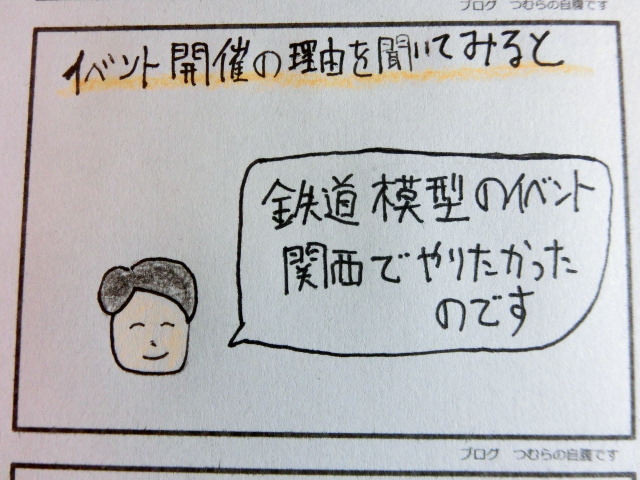 ブログ　つむらの自腹です
イベント開催の理由を聞いてみると
鉄道模型のイベント
関西でやりたかった
のです
ブログ　つむらの自腹です